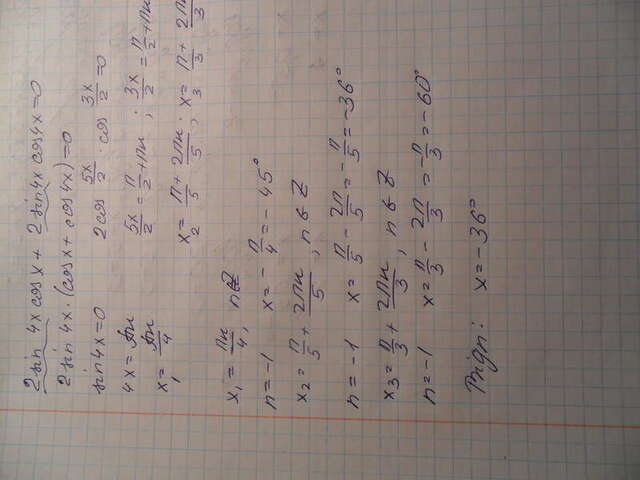 2 sin 4x cos x + 2 sin 4x cos 4x = 0
2 sin 4x · (cos x + cos 4x) = 0
sin 4x = 0 2 cos 5x/2 · cos 3x/2 = 0
4x = πn 5x/2 = π/2 + πn ; 3x/2 = π/2 + πn
x₁ = πn/4 x₂ = π/5 + 2πn/5 ; x₃ = π/3 + 2π/3
x₁ = πn/4, n∈Z
n = -1 x = -π/4 = -45°
x₂ = π/5 + 2πn/5, n ∈ Z
n = -1 x = π/5 - 2π/5 = -π/5 = -36°
x₃ = π/3 + 2πn/3, n ∈ Z
n = -1 x = π/3 - 2π/3 = -π/3 = -60°
Відп: x = -36°